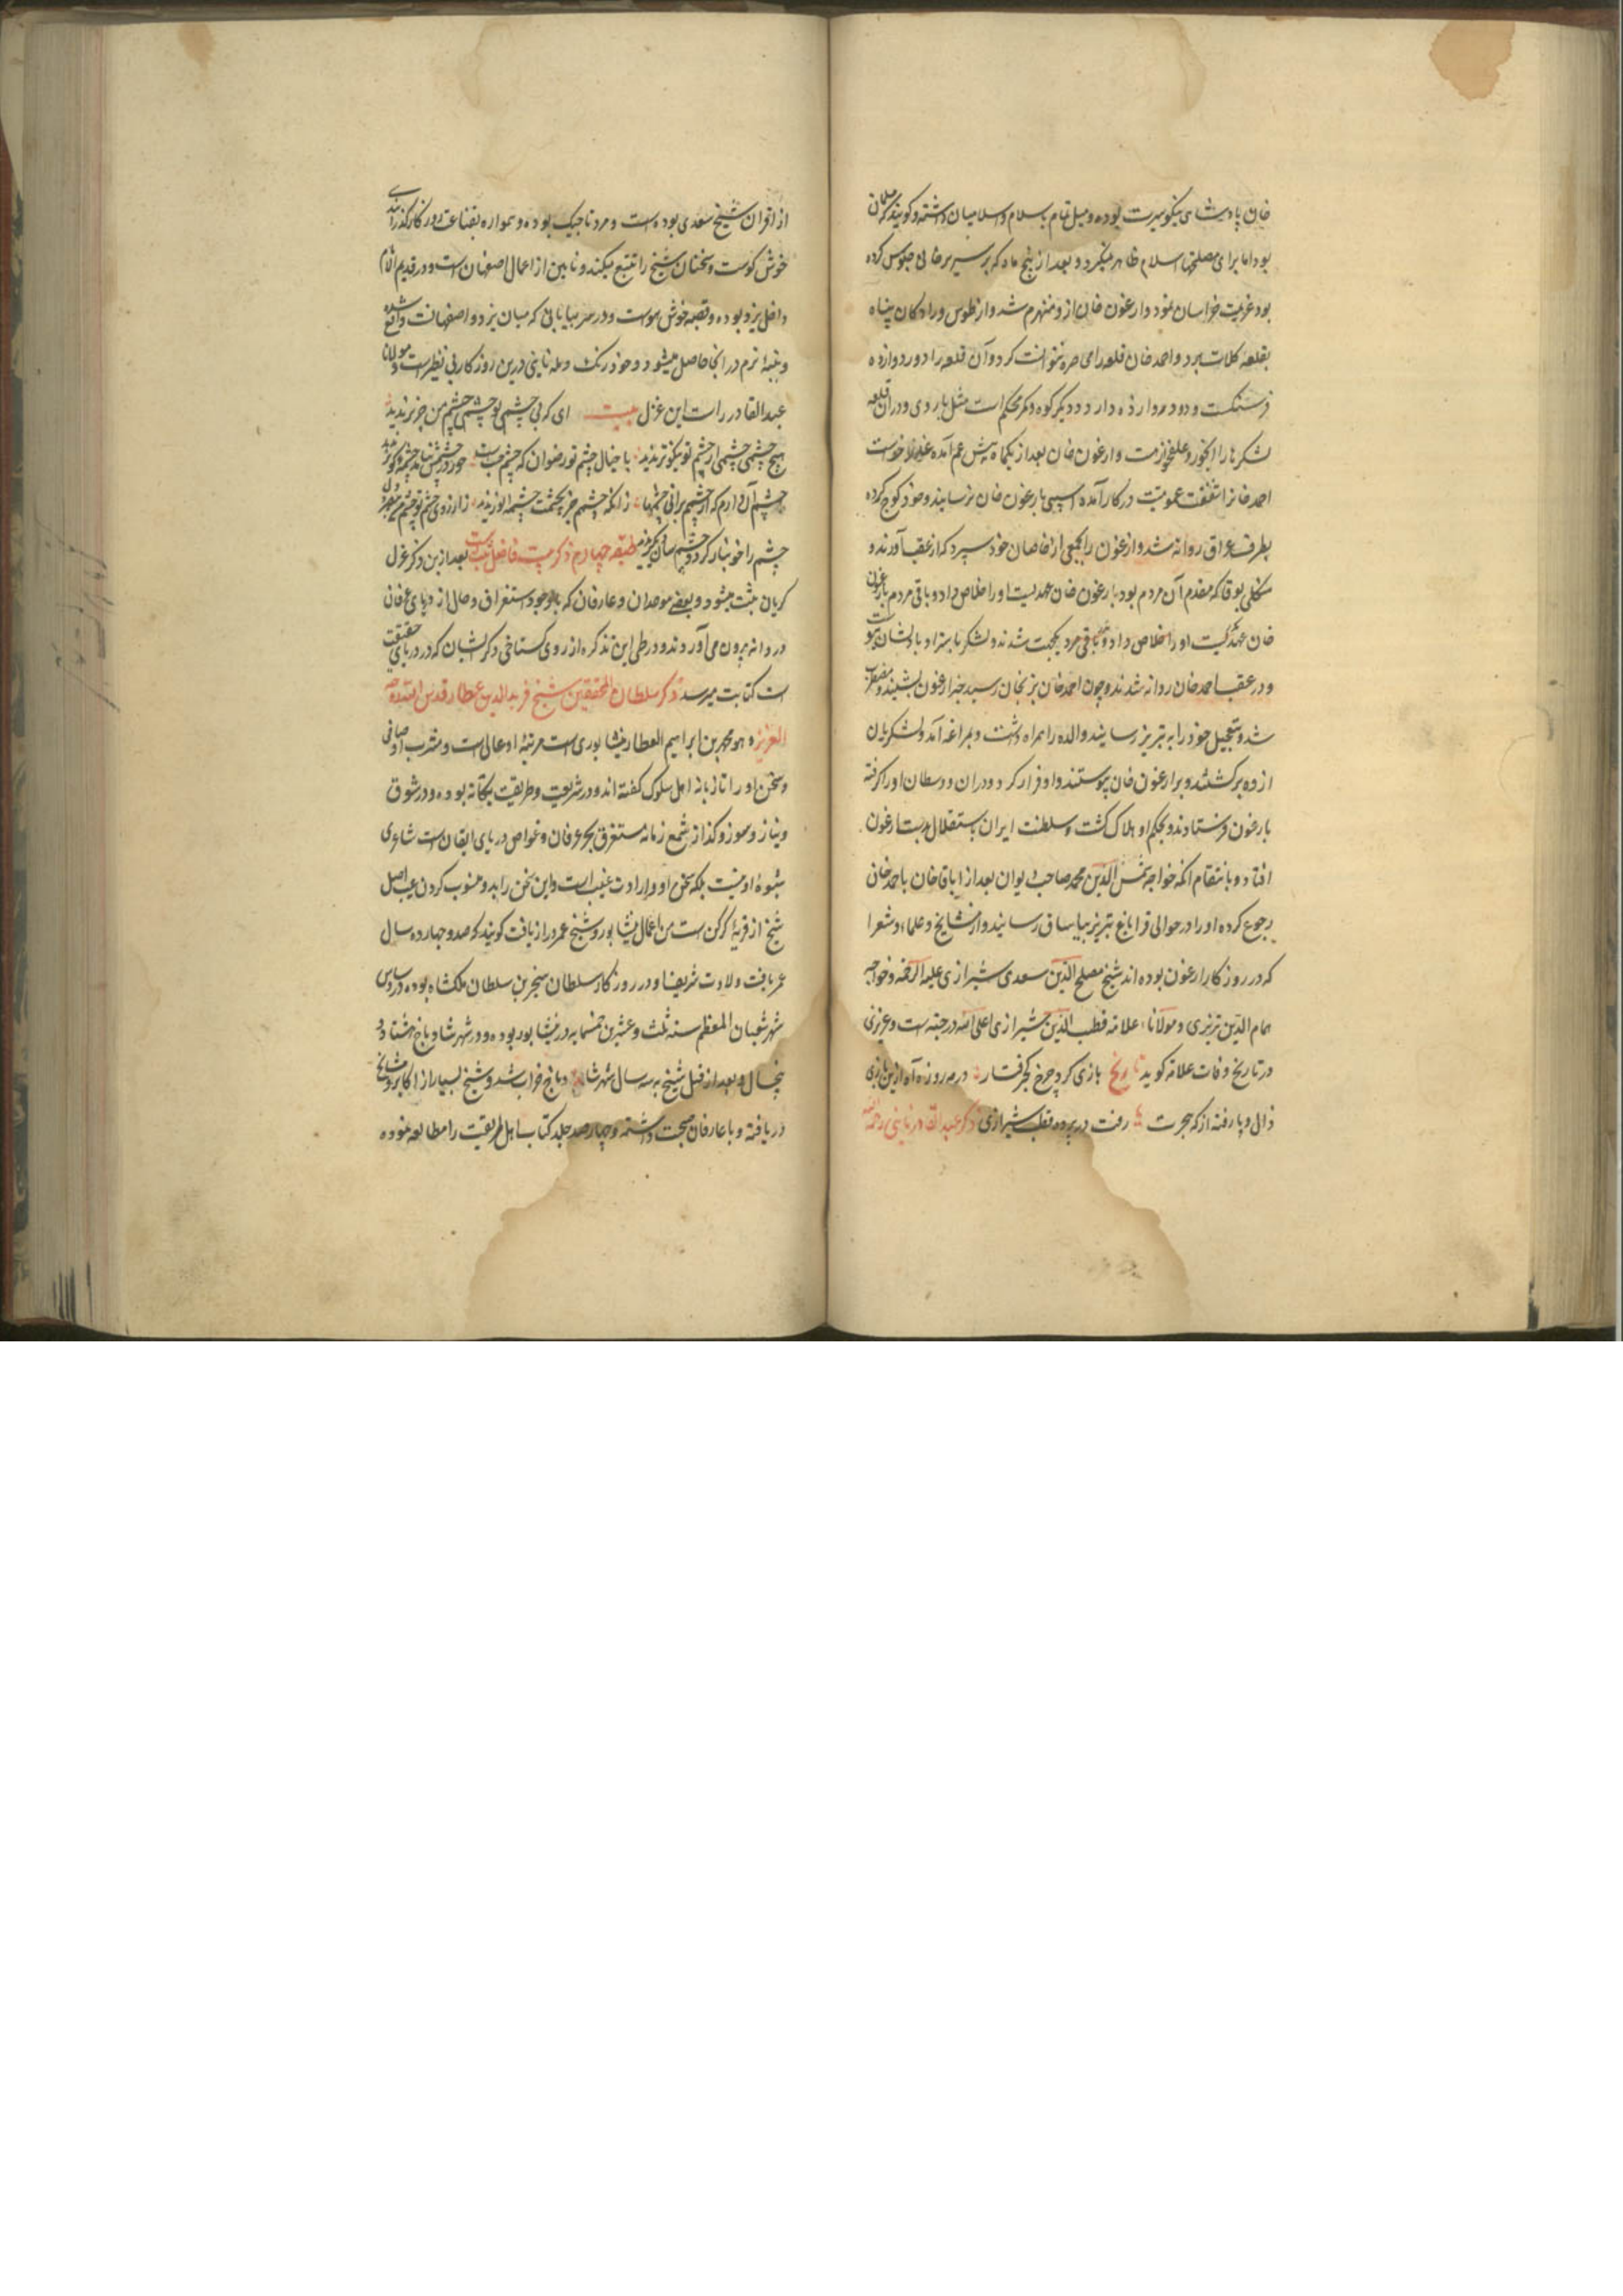 خان پادشاهی نیکو سیرت بوده و میل تمام باسلام و اسلامیان داشته و کویند که مسلمان
بود اما برای مصلحتها اسلام ظاهر نمیکرد و بعد از پنج ماه که بر سریر خانی جلوس کرده
بود عزیمت خراسان نمود و ارغون خان ازو منهزم شد و از طوس و رادکان پناه
بقلعه کلات برد و احمد خان قلعه را محاصره نتوانست کرد و آن قلعه را دور دوازده
فرسنکست و دو دروازه دارد و دیکر کوه و کمر محکم است مثل باروی و در آن قلعه
لشکرها را آبخور و علفخوارست و ارغون خان بعد از یکماه پیش عم آمده عذر خواست
احمد خانرا شفقت عمومیت در کار آمده آسیبی بارغون خان نرسانید و خود کوچ کرده
بطرف عراق روانه شد و ارغون را بجمعی از خاصان خود سپرد که از عقب آورند و
بوقا که مقدم آن مردم بود با ارغون خان عهد بست و او را خلاص داد و باقی مردم با ارغون
خان عهد بست او را خلاص داد و باقی مردم یکجهت شدند و لشکر با بتزاد با ایشان
و در عقب احمد خان روانه شدند و چون احمد خان بزنجان رسید خبر ارغون بشنید و مضطرب
شد و بتعجیل خود را به تبریز رسانید و والده را همراه داشت و بمراغه آمد و لشکریان
ازو برکشتند و برارغون خان پیوستند و او فرار کرد و در آن سلطان او را کرفته
بارغون فرستادند و بحکم او هلاک کشت و سلطنت ایران باستقلال بدست ارغون
افتاد و بانتقام آنکه خواجه شمس الدین محمد صاحب دیوان بعد از اباقاخان باحمد خان
رجوع کرده او را در حوالی قراباغ تبریز بیاساق رسانید و از مشایخ و علما و شعرا
که در روزکار ارغون بوده اند شیخ مصلح الدین سعدی شیرازی علیه الرحمه و خواجه
همام الدین تبریزی و مولانا علامه قطب الدین شیرازی اعلی الله درجته است و عزیزی
در تاریخ وفات علامه کوید تاریخ بازی کرد چرخ کجرفتار در مه روزه آه ازین بازی
ذال و یا رفته از که هجرت ها رفت در پرده قطب شیرازی ذکر عبدالقادر نایینی رحمه الله
از اقران شیخ سعدی بوده است و مرد تاجیک بوده و همواره بقناعت روزکار کذرانیدی
خوش کوست و سخنان شیخ را تتبع میکند و نایین از اعمال اصفهان است و در قدیم الایام
داخل یزد بوده و قصبه خوش هواست و در سر بیابانی که میان یزد و اصفهانست واقع شده
و پنبه نرم در آنجا حاصل میشود و خود رنک و مله نایینی درین روزکار بی نظیر است و مولانا
عبدالقادر راست این غزل بیت ای که بی چشم تو چشم من جز تر ندید
هیچ چشمی چشمی از چشم تو نیکوتر ندید با خیال چشم تو رضوان که چشم جنت
چشم آن دارم که از چشم برانی چشمها زانکه چشمم جز بچشمت چشمه انور ندید زارزوی چشم تو
چشم را خونبار کرد و چشم طبقه چهارم ذکر بیست فاضل ثبت است بعد ازین ذکر غزل
کریان ثبت میشود و بعضی موحدان و عارفان که باوجود استغراق و حال از دریای عرفان
دردانه بیرون می آوردند و در طی این تذکره از روی کستاخی ذکر ایشان که در دریای حقیقت
است کتابت میرسد ذکر سلطان المحققین شیخ فریدالدین عطار قدس الله سره
العزیز و هو محمد بن ابراهیم العطار نیشابوری است مرتبه او عالی است و مشرب او صافی
و سخن او را تازیانه اهل سلوک کفته اند و در شریعت و طریقت یکانه بوده و در شوق
و نیاز و سوز و کداز شمع زمانه مستغرق بحر عرفان و غواص دریای ایقان است شاعری
شیوه او نیست بلکه سخن او واردات غیب است و این سخن را بدو منسوب کردن عیب اصل
شیخ از قریه کرکن است من اعمال نیشابور و شیخ عمر دراز یافت کویند که صد و چهارده سال
عمر یافت ولادت شریف او در روزکار سلطان سنجر بن سلطان ملکشاه بوده در سادس
شهر شعبان المعظم سنه ثلث و عشرین و خمسمایه در نیشابور بوده و در شهر شادیاخ هشتاد و
پنجسال و بعد از قتل شیخ به سه سال شهر شادیاخ خراب شد و شیخ بسیار از اکابر و مشایخ
دریافته و با عارفان صحبت داشته و چهارصد جلد کتاب اهل طریقت را مطالعه نموده